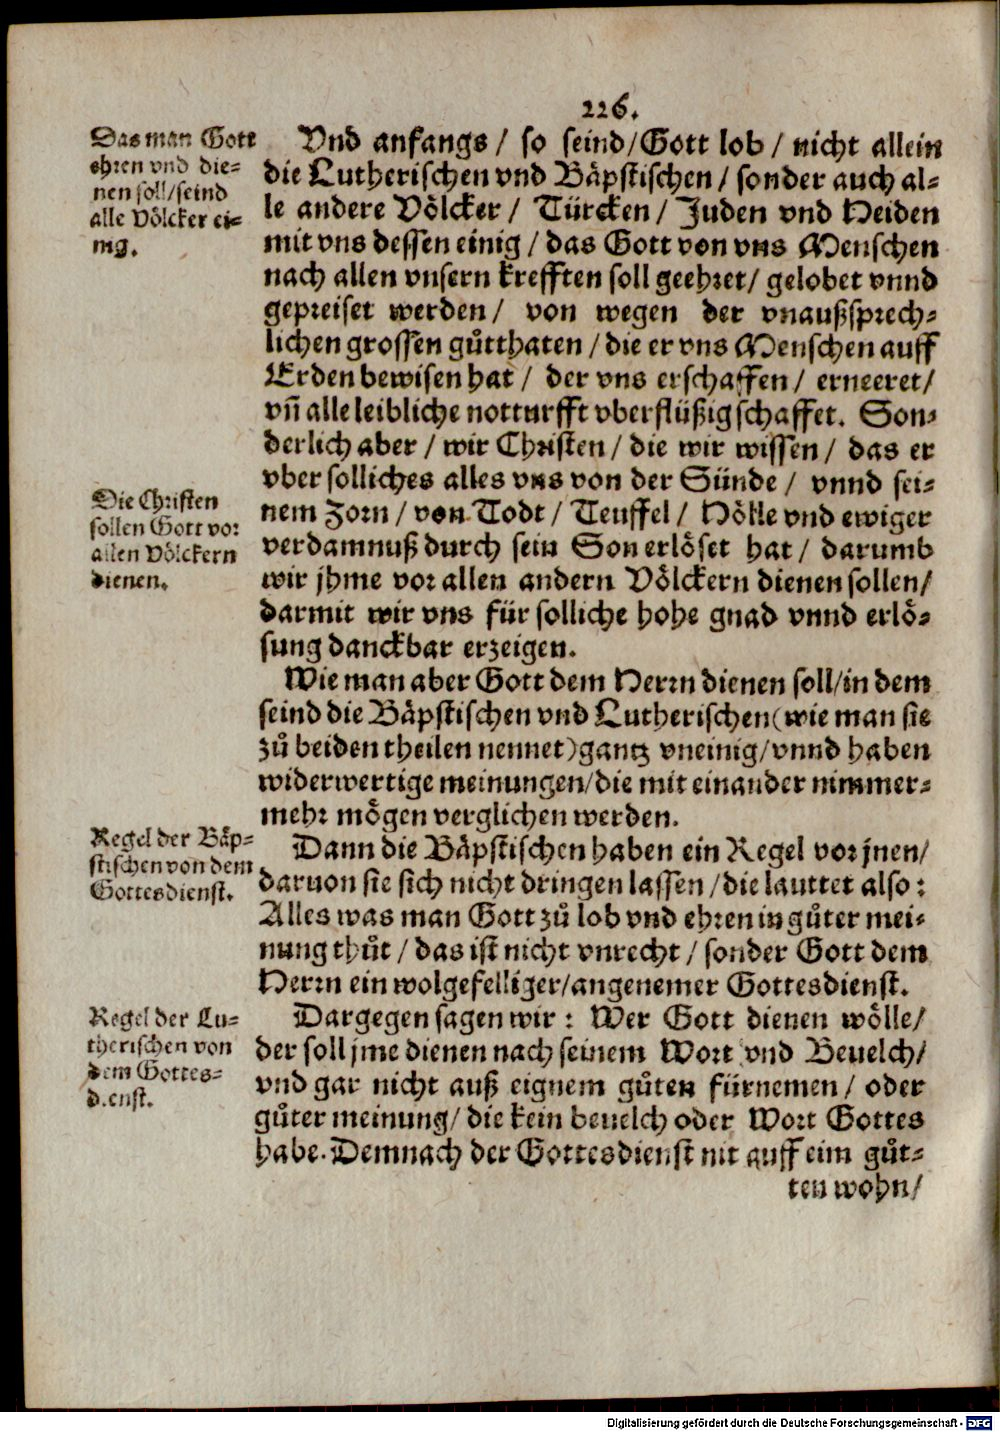 226.
Das man Gott
ehren vnd die-
nen soll/seind
alle Völcker ei-
nig.
Vnd anfangs / so seind/Gott lob / nicht allein
die Lutherischen vnd Bäpstischen / sonder auch al-
le andere Völcker / Türcken / Juden vnd Heiden
mit vns dessen einig / das Gott von vns Menschen
nach allen vnsern krefften soll geehret/ gelobet vnnd
gepreiset werden / von wegen der vnaußsprech-
lichen grossen gůtthaten / die er vns Menschen auff
Erden bewisen hat / der vns erschaffen / erneeret/
vñ alle leibliche notturfft vberflüßig schaffet. Son-
derlich aber / wir Christen / die wir wissen / das er
vber solliches alles vns von der Sünde / vnnd sei-
nem Zorn / von Todt / Teuffel / Hölle vnd ewiger
verdamnuß durch sein Son erlöset hat / darumb
wir jhme vor allen andern Völckern dienen sollen/
darmit wir vns für solliche hohe gnad vnnd erlö-
sung danckbar erzeigen.
Die Christen
sollen Gott vor
allen Völckern
dienen.
Wie man aber Gott dem Herrn dienen soll/in dem
seind die Bäpstischen vnd Lutherischen (wie man sie
zů beiden theilen nennet) gantz vneinig/vnnd haben
widerwertige meinungen/die mit einander nimmer-
mehr mögen verglichen werden.
Regel der Bäp-
stischen von dem
Gottesdienst.
Dann die Bäpstischen haben ein Regel vor jnen/
daruon sie sich nicht dringen lassen / die lauttet also:
Alles was man Gott zů lob vnd ehren in gůter mei-
nung thůt / das ist nicht vnrecht / sonder Gott dem
Herrn ein wolgefelliger/angenemer Gottesdienst.
Regel der Lu-
therischen von
dem Gottes-
dienst.
Dargegen sagen wir : Wer Gott dienen wölle/
der soll jme dienen nach seinem Wort vnd Beuelch/
vnd gar nicht auß eignem gůten fürnemen / oder
gůter meinung/ die kein beuelch oder Wort Gottes
habe. Demnach der Gottesdienst nit auff eim gůt-
ten wohn/
Digitalisierung gefördert durch die Deutsche Forschungsgemeinschaft - DFG